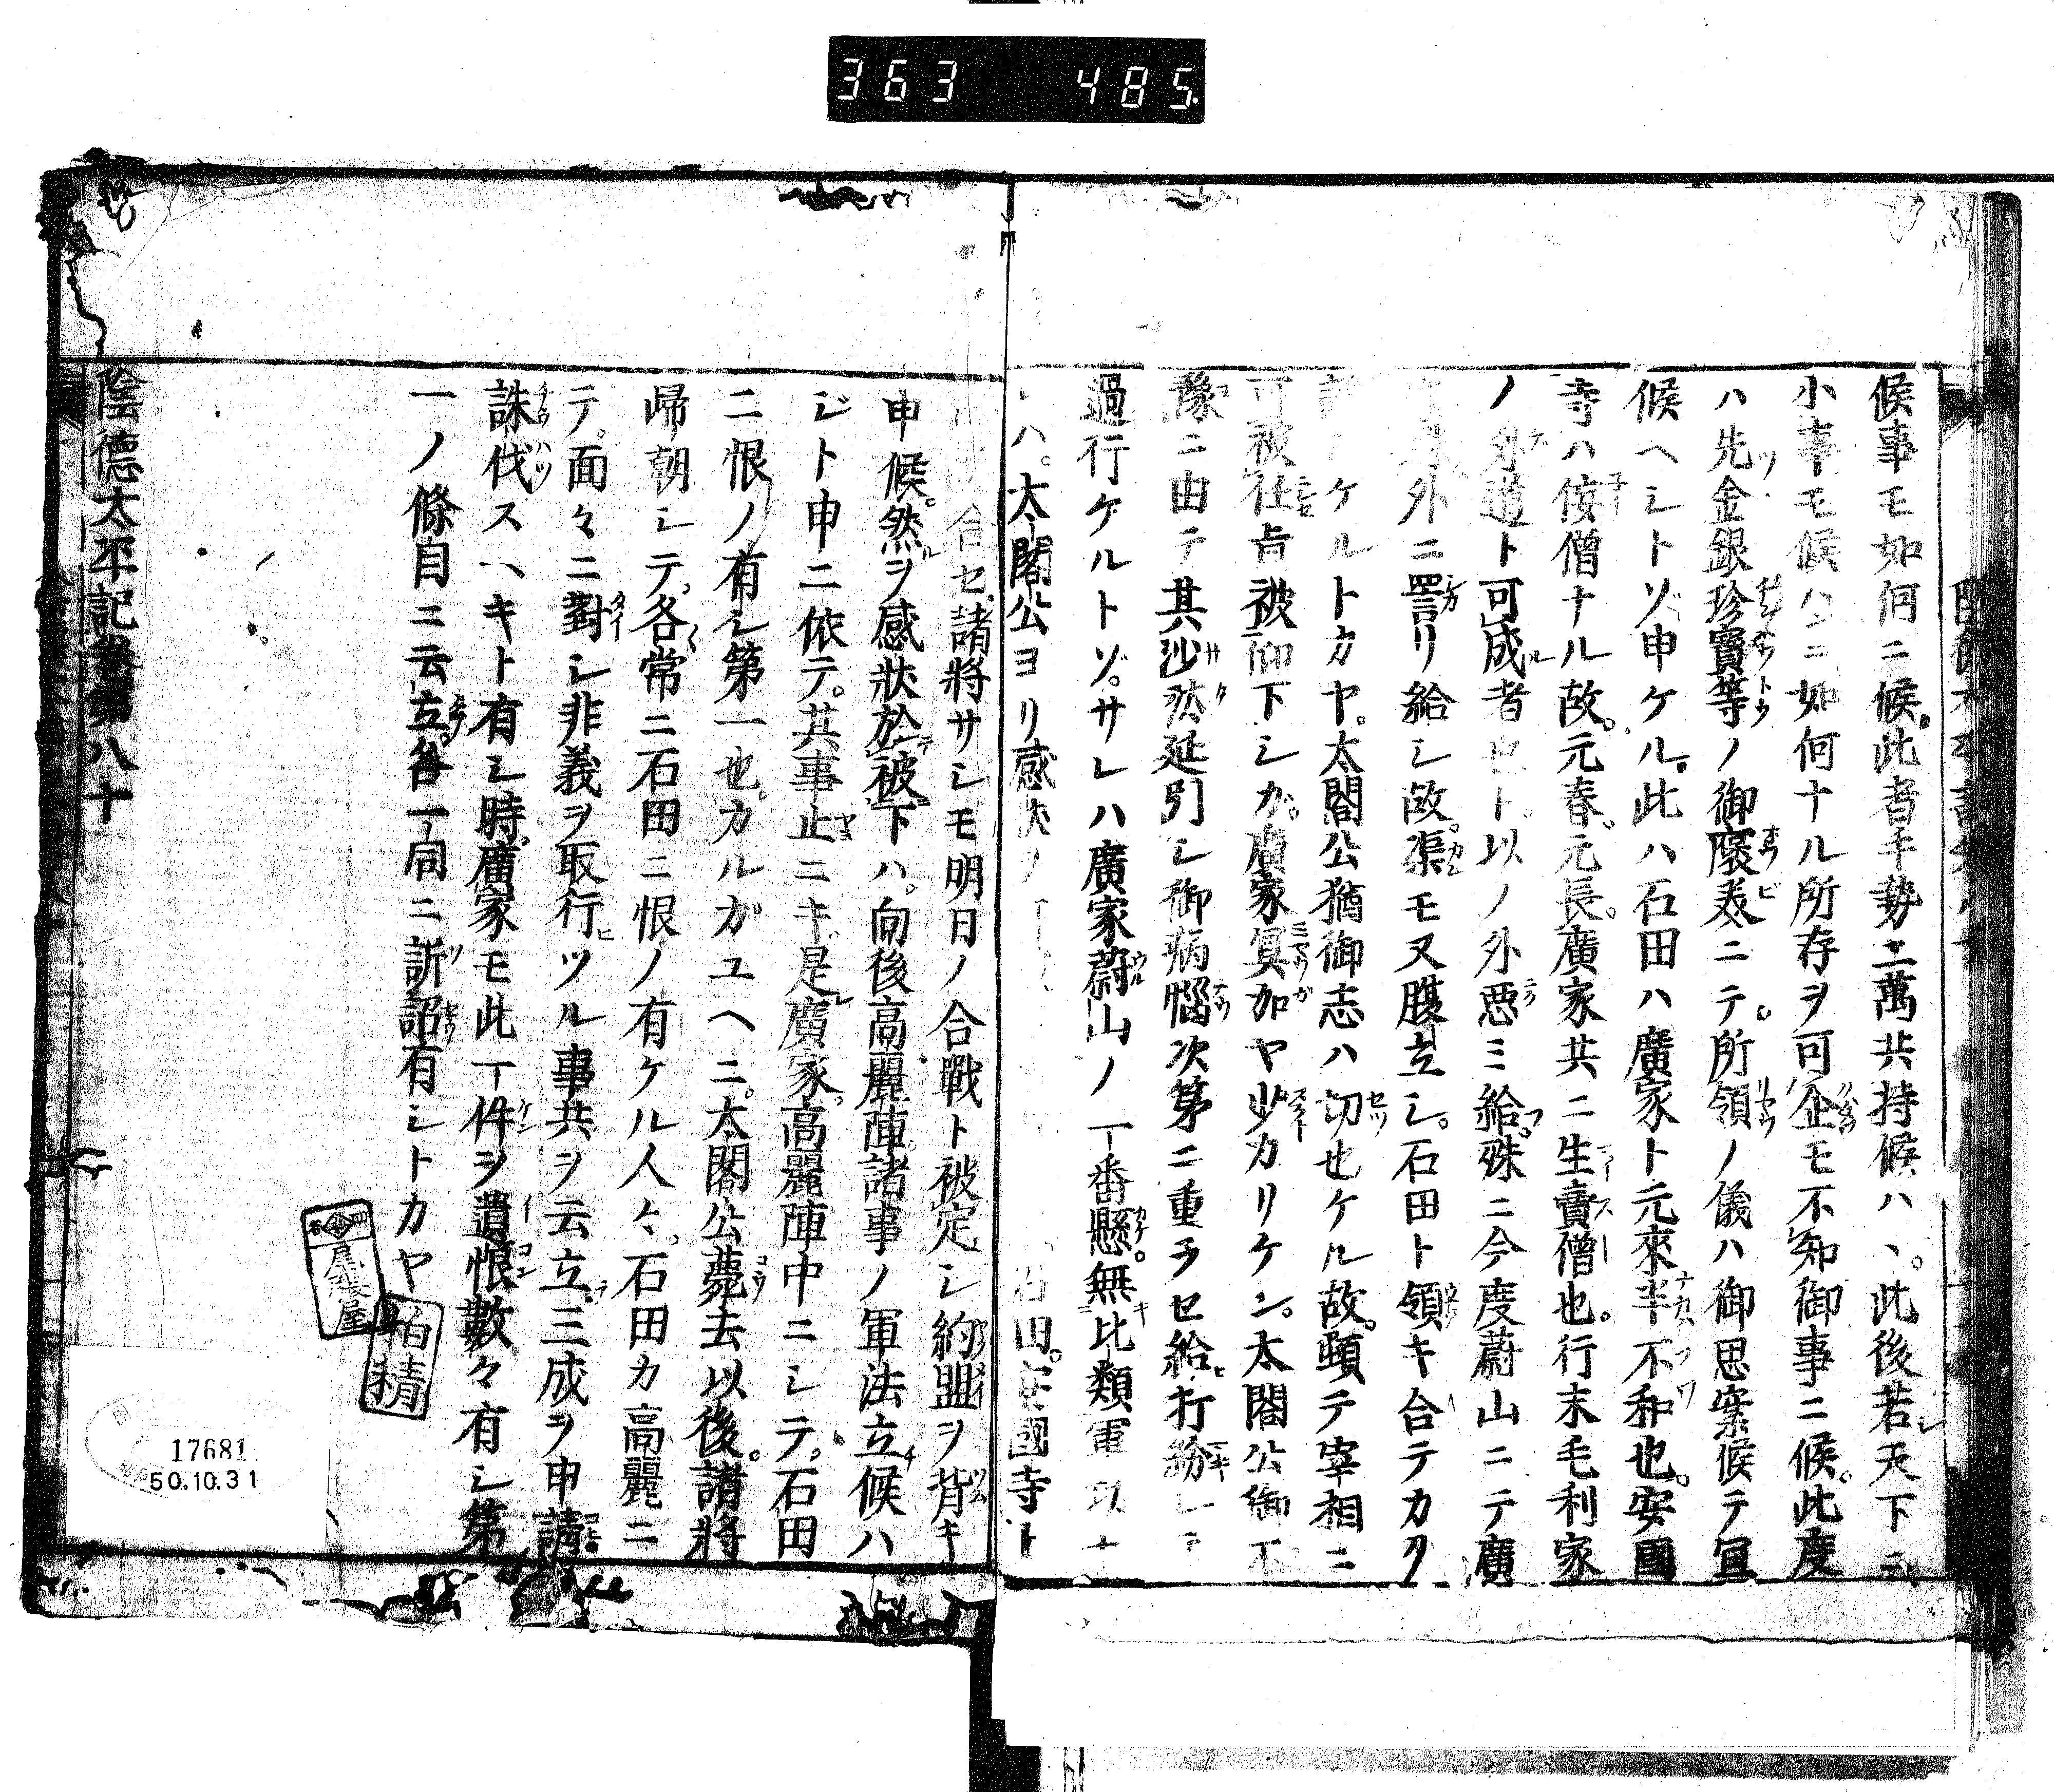 363 485
候事モ如何ニ候。此者手勢二萬共持候ハヽ。此後若天下ニ
小事モ候ハンニ如何ナル所存ヲ可企モ不知御事ニ候。此度
ハ先金銀珍寶等ノ御褒美ニテ。所領ノ儀ハ御思案候テ宜
候ヘシトソ申ケル。此ハ石田ハ廣家ト元來半不和也。安國
寺ハ侫僧ナル故。元春元長。廣家共ニ生賣僧也。行末毛利家
ノ外道ト可成者也ト以ノ外悪ミ給フ。殊ニ今度蔚山ニテ廣
外ニ詈リ給シ故。渠モ又腹立シ。石田ト領キ合テカク
ケルトカヤ。太閤公猶御志ハ切也ケル故。頓テ宰相ニ
可被任旨被仰下シカ。廣家冥加ヤ少カリケン。太閤公御不
豫ニ由テ其沙汰延引シ御病惱次第ニ重ラセ給ヒ打紛レテ
過行ケルトソ。サレハ廣家蔚山ノ一番懸。無比類軍
ハ。太閤公ヨリ感狀 石田。安國寺ト
合セ。諸將サシモ明日ノ合戰ト被定シ約盟ヲ背キ
申候。然ヲ感狀於被下ハ。向後高麗陣諸事ノ軍法立候ハ
ジト申ニ依テ。其事止ニキ。是廣家高麗陣中ニシテ。石田
ニ恨ノ有シ第一也。カルガユヘニ。太閤公薨去以後。諸將
歸朝シテ。各常ニ石田ニ恨ノ有ケル人々。石田カ高麗ニ
テ。面々ニ對シ非義ヲ取行ヒツル事共ヲ云立テ。三成ヲ申請
誅伐スヘキト有シ時。廣家モ此一件ヲ遺恨數々有シ第
一ノ條目ニ云立。各一同ニ訴詔有シトカヤ
陰德太平記卷第八十
尾張屋
17681
50.10.31